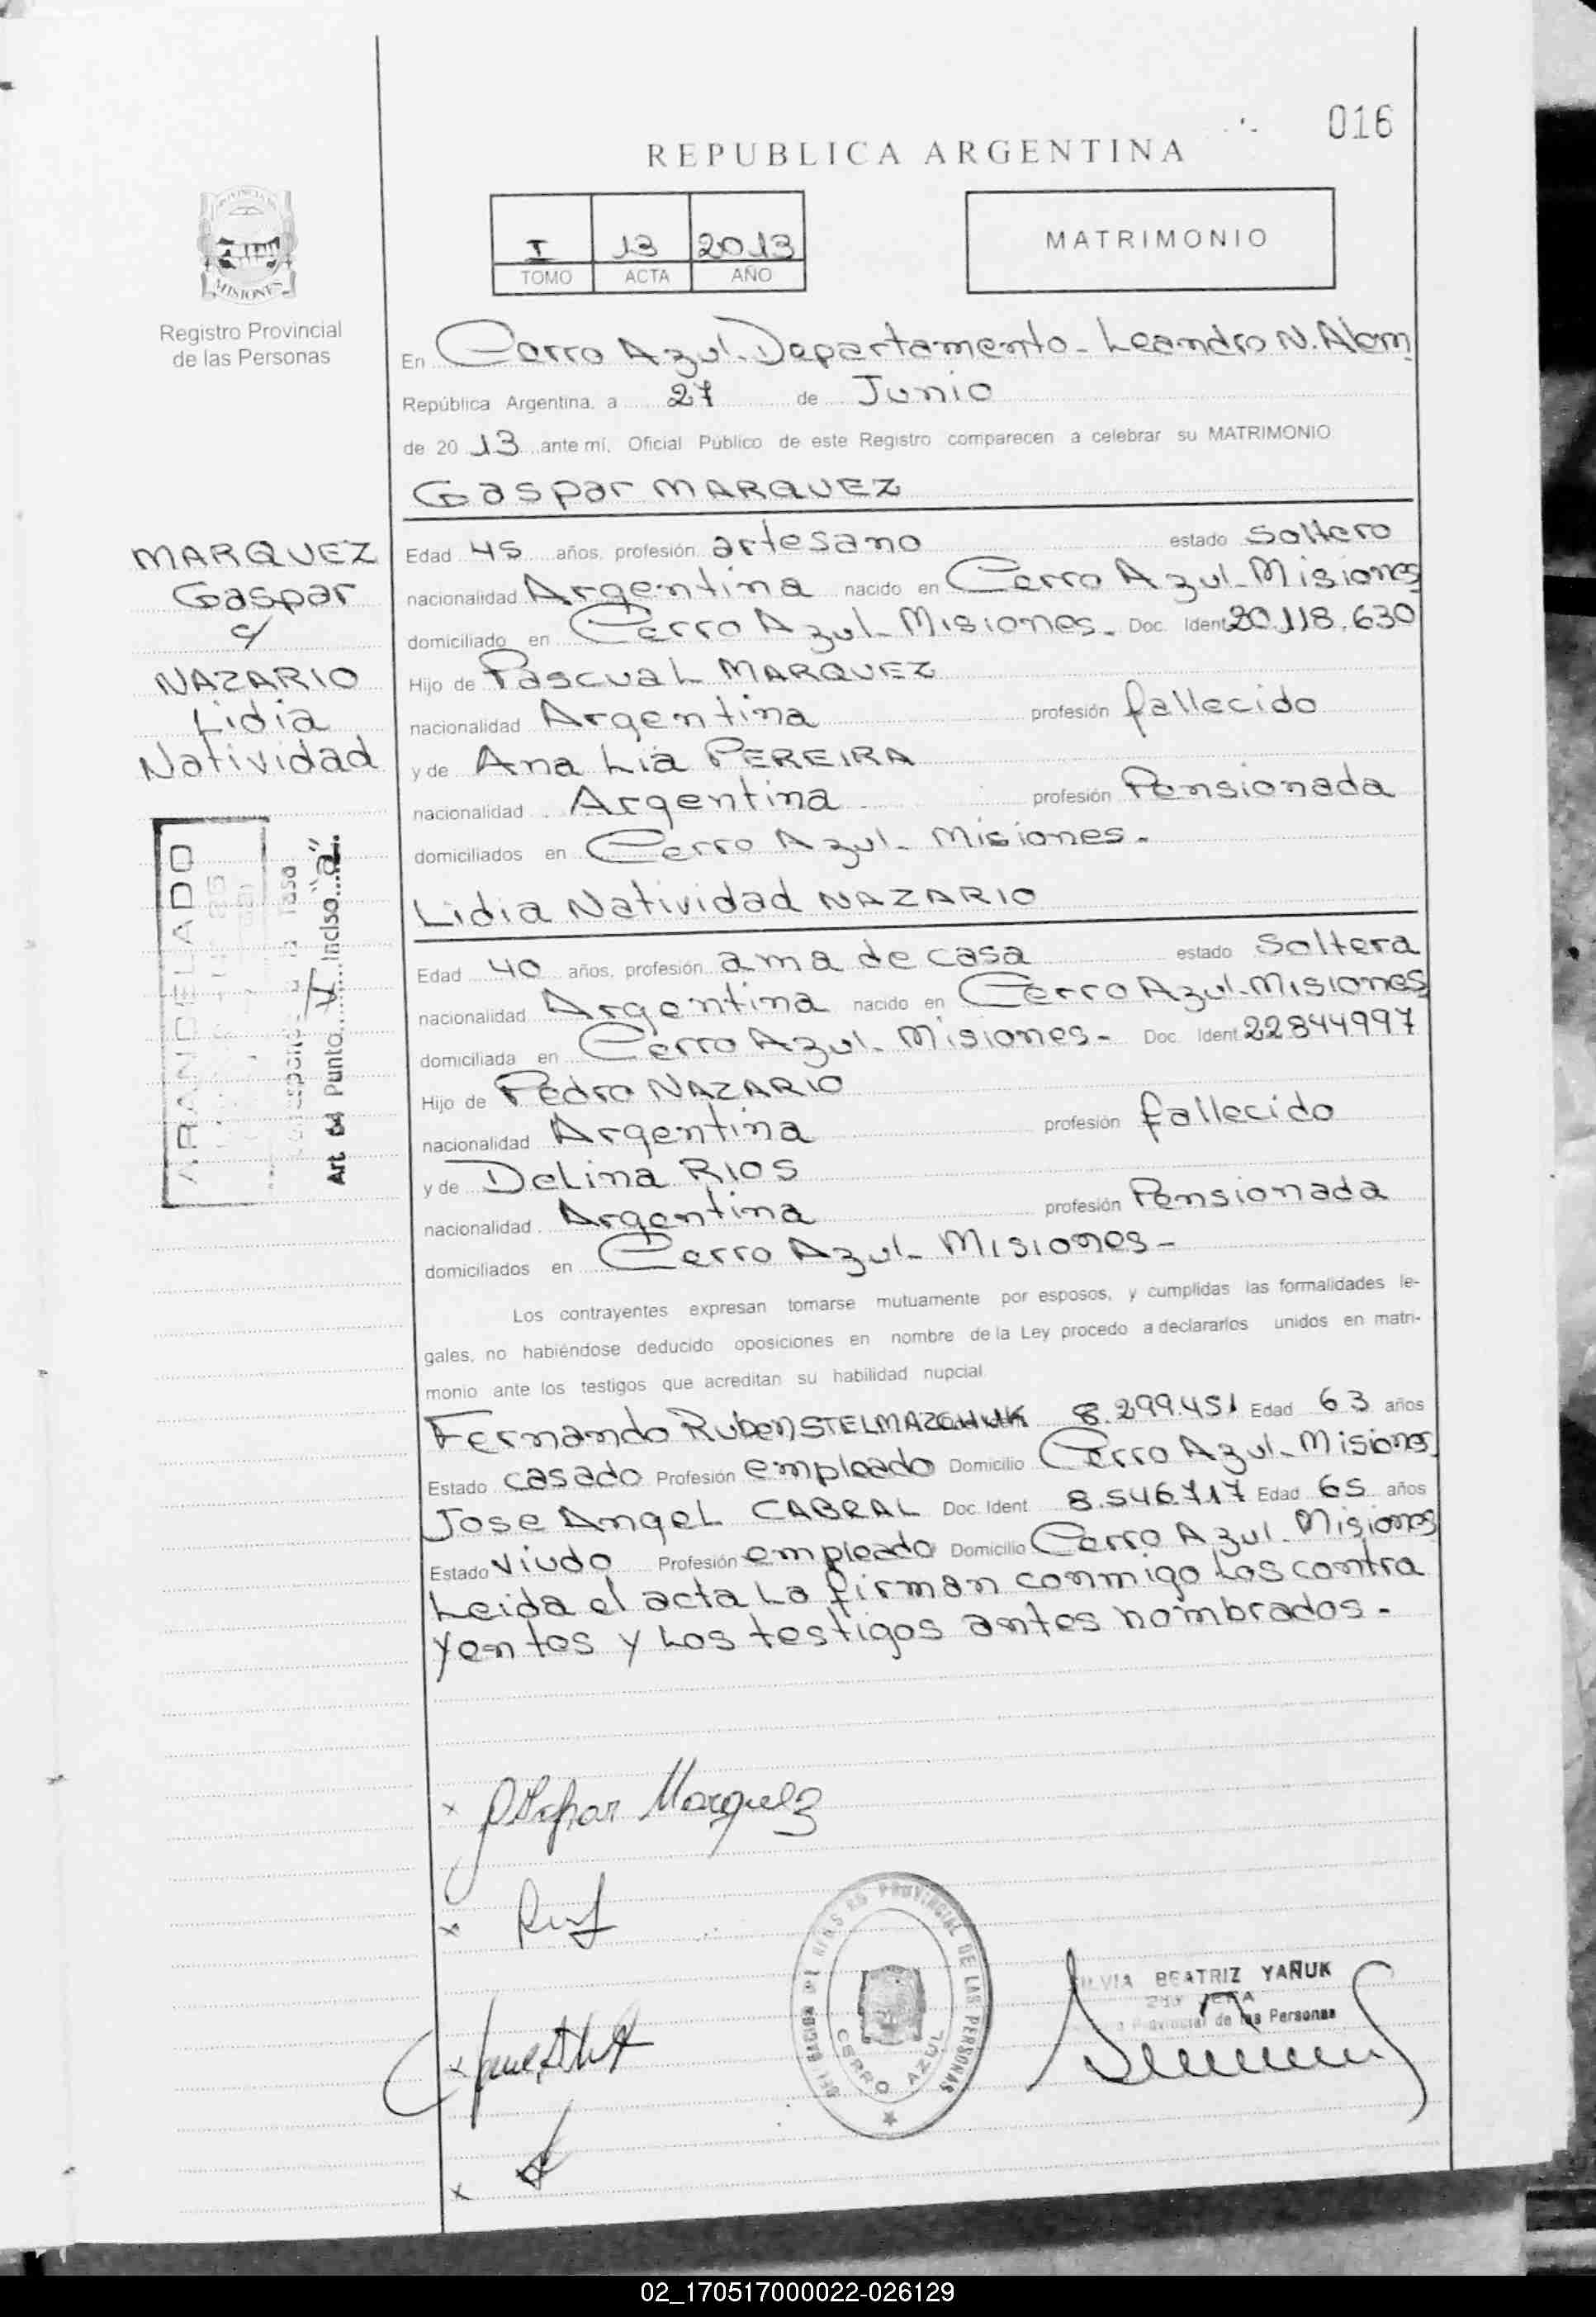 016
REPUBLICA ARGENTINA
I 13 2013
TOMO ACTA AÑO
MATRIMONIO
MISIONES
Registro Provincial
de las Personas
En Cerro Azul. Departamento - Leandro N. Alem
República Argentina, a 27 de Junio
de 2013 ante mí, Oficial Público de este Registro comparecen a celebrar su MATRIMONIO
Gaspar MARQUEZ
MARQUEZ
Gaspar
c/
NAZARIO
Lidia
Natividad
Edad 45 años, profesión artesano estado Soltero
nacionalidad Argentina nacido en Cerro Azul - Misiones
domiciliado en Cerro Azul - Misiones. Doc. Ident 20.118.630
Hijo de Pascual MARQUEZ
nacionalidad Argentina profesión fallecido
y de Ana Lia PEREIRA
nacionalidad Argentina profesión Pensionada
domiciliados en Cerro Azul - Misiones.
ARANDELADO
la Tasa
Art 64 Punto V Inciso "a".
Lidia Natividad NAZARIO
Edad 40 años, profesión ama de casa estado Soltera
nacionalidad Argentina nacido en Cerro Azul - Misiones
domiciliada en Cerro Azul - Misiones - Doc. Ident 22844997
Hijo de Pedro NAZARIO
nacionalidad Argentina profesión fallecido
y de Delina RIOS
nacionalidad Argentina profesión Pensionada
domiciliados en Cerro Azul - Misiones -
Los contrayentes expresan tomarse mutuamente por esposos, y cumplidas las formalidades le-
gales, no habiéndose deducido oposiciones en nombre de la Ley procedo a declararlos unidos en matri-
monio ante los testigos que acreditan su habilidad nupcial
Fernando Ruben STELMAZCHUK 8.299.451 Edad 63 años
Estado casado Profesión empleado Domicilio Cerro Azul - Misiones
Jose Angel CABRAL Doc. Ident 8.546.717 Edad 65 años
Estado Viudo Profesión empleado Domicilio Cerro Azul. Misiones
Leida el acta La firman conmigo Los contra
yentes y Los testigos antes nombrados -
x Gaspar Marquez
x
x
x
PROVINCIAL DE LAS PERSONAS
CERRO AZUL
SILVIA BEATRIZ YAÑUK
Provincial de las Personas
02_170517000022-026129